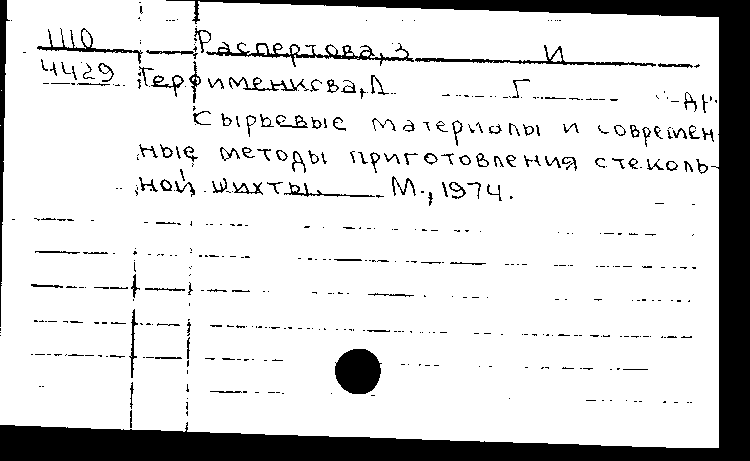 1110 Распертова, З И
4429 Герфименкова, Л Г
Сырьевые материалы и современ-
ные методы приготовления стеколь-
ной шихты. М., 1974.